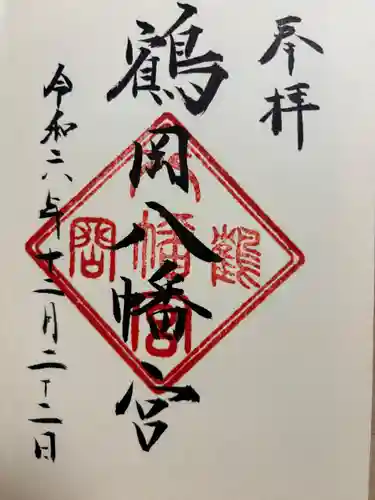 奉拝
鶴岡八幡宮
令和六年十二月二十二日
鶴
八幡宮
岡